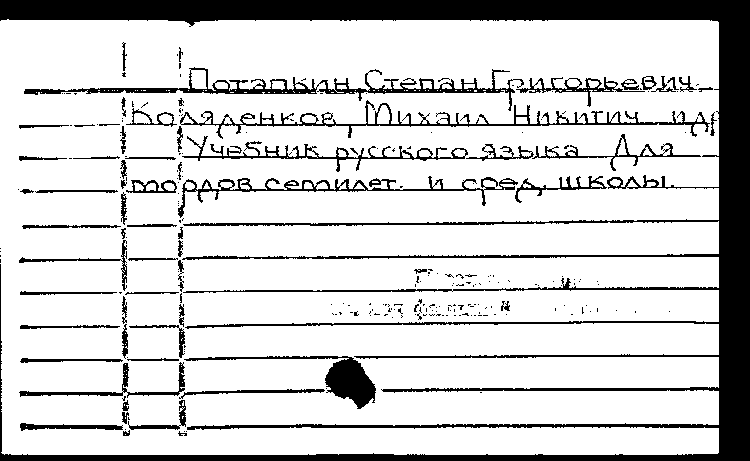 Потапкин, Степан Григорьевич.
Коляденков, Михаил Никитич и др
Учебник русского языка Для
мордов семилет. и сред. школы.